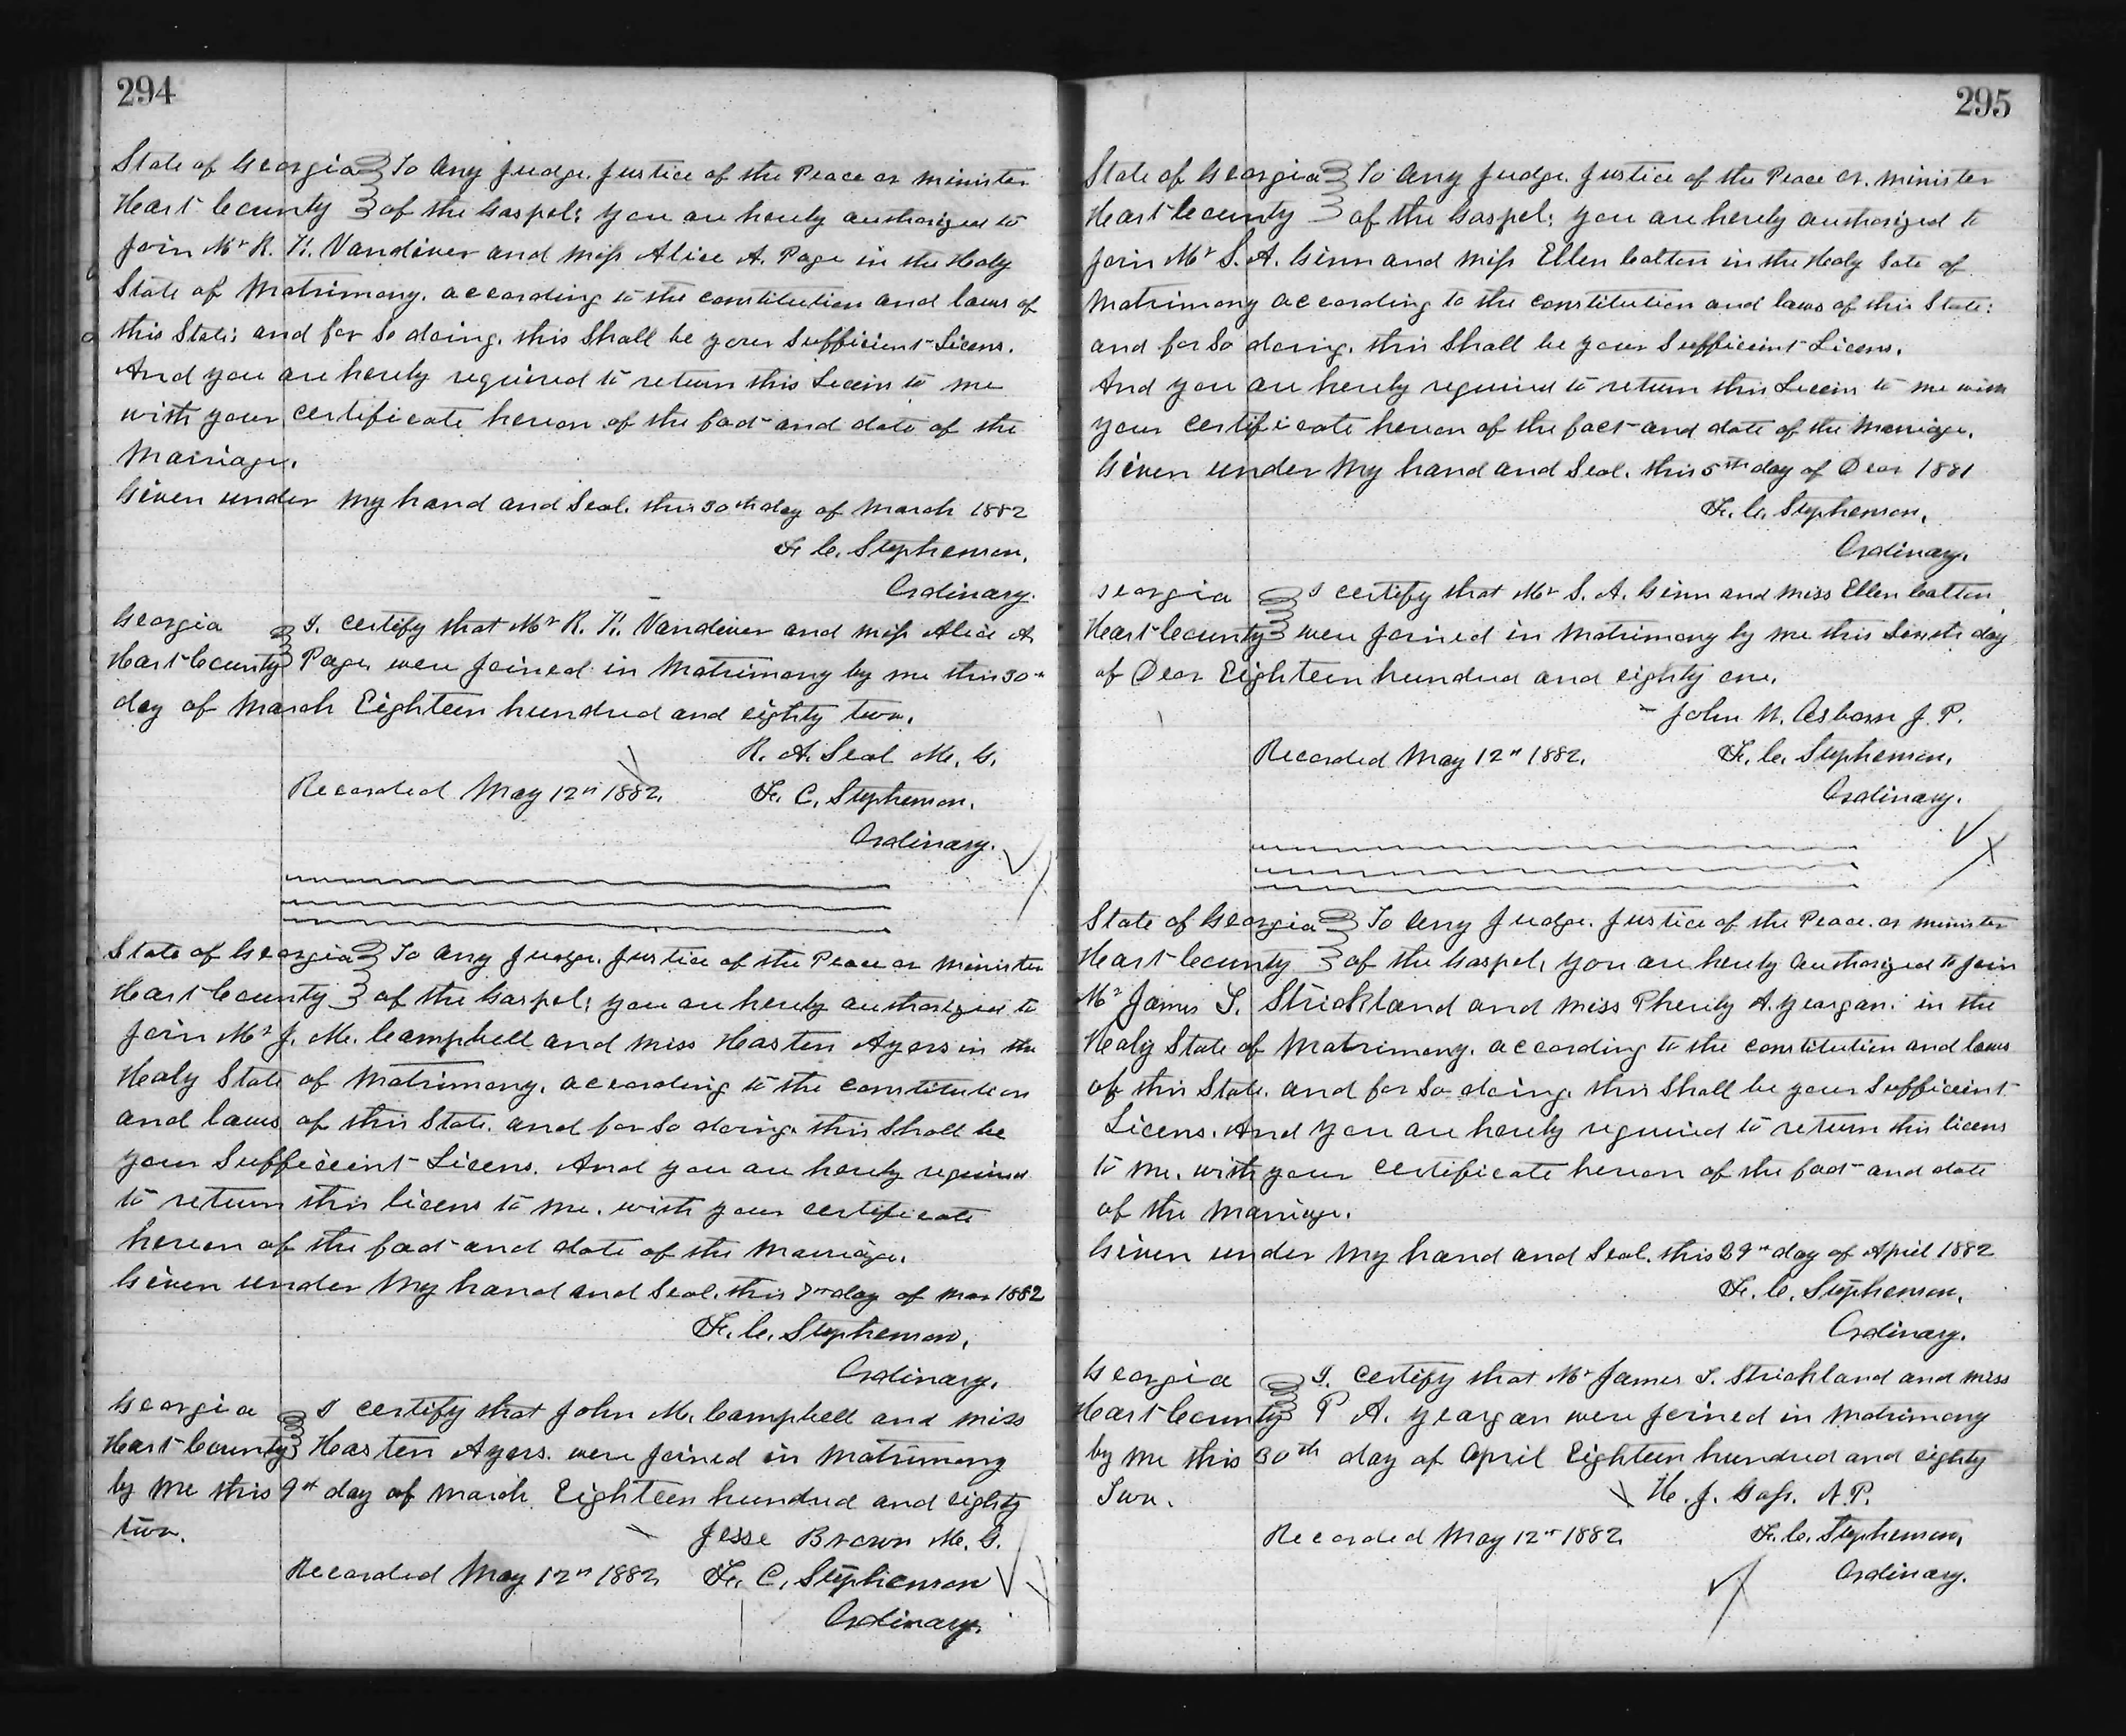 294
State of Georgia To any Judge. Justice of the Peace or minister
Hart County of the Gospel; you are hereby authorized to
join Mr R. H. Vandiver and miss Alice A. Page in the Holy
State of Matrimony. according to the constitution and laws of
this State; and for so doing. this Shall be your Sufficient Licens.
And you are hereby required to return this Licens to me
with your certificate hereon of the fact and date of the
Marriage.
Given under my hand and Seal. this 30th day of March 1882
F. C. Stephenson,
Ordinary.
Georgia I. certify that Mr R. H. Vandiver and miss Alice A.
Hart County Page, were joined in Matrimony by me this 30th
day of March Eighteen hundred and eighty two.
R. A. Seal M. G.
Recorded May 12th 1882. F. C. Stephenson.
Ordinary.
State of Georgia To any Judge. Justice of the Peace or minister
Hart County of the Gospel; you are hereby authorized to
join Mr J. M. Campbell and miss Hasten Ayers in the
Holy State of Matrimony. according to the constitution
and laws of this State. and for So doing. this Shall be
your Sufficient Licens. And you are hereby required
to return this licens to me. with your certificate
hereon of the fact and date of the Marriage.
Given under my hand and Seal. this day of Mar 1882
F. C. Stephenson,
Ordinary.
Georgia I certify that John M. Campbell and miss
Hart County Hasten Ayers. were joined in matrimony
by me this 9th day of March Eighteen hundred and eighty
two.
Jesse Brown M. G.
Recorded May 12th 1882. F. C. Stephenson
Ordinary.
295
State of Georgia To any Judge. Justice of the Peace or. minister
Hart County of the Gospel; you are hereby authorized to
join Mr S. A. Ginn and miss Ellen Colten in the Holy Sate of
Matrimony according to the constitution and laws of this State:
and for So doing. this Shall be your Sufficient Licens.
And you are hereby required to return this Licens to me with
your certificate hereon of the fact and date of the Marriage.
Given under my hand and Seal. this 5th day of Decr 1881
F. C. Stephenson,
Ordinary.
Georgia I certify that Mr S. A. Ginn and miss Ellen Colten
Hart County were joined in Matrimony by me this day
of Decr Eighteen hundred and eighty one.
John N. Osborn J. P.
Recorded May 12th 1882. F. C. Stephenson,
Ordinary.
State of Georgia To any Judge. Justice of the Peace. or minister
Hart County of the Gospel, you are hereby authorized to join
Mr James T. Strickland and miss Phereby A. yeargan. in the
Holy State of Matrimony. according to the constitution and laws
of this State. and for So doing. this Shall be your Sufficient
Licens. And you are hereby required to return this licens
to me. with your certificate hereon of the fact and date
of the Marriage.
Given under my hand and Seal. this 29th day of April 1882
F. C. Stephenson,
Ordinary.
Georgia I. certify that Mr James T. Strickland and miss
Hart County P A. yeargan were joined in matrimony
by me this 30th day of April Eighteen hundred and eighty
Two.
H. J. Goss. N. P.
Recorded May 12th 1882. F. C. Stephenson,
Ordinary.